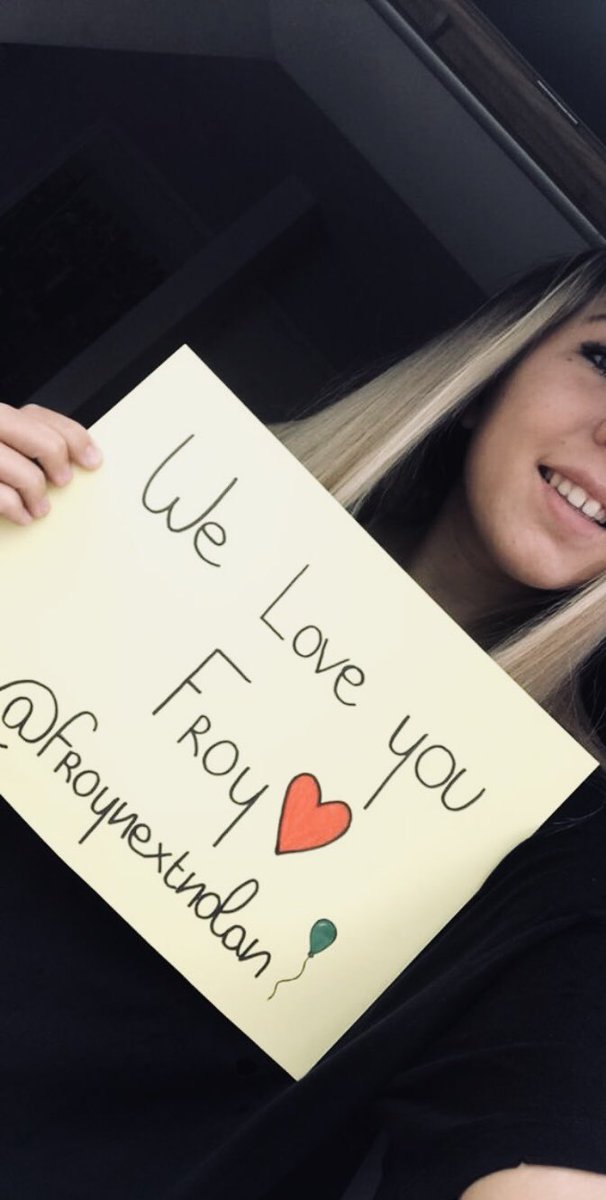 We Love you
FROY
@froynextnolan